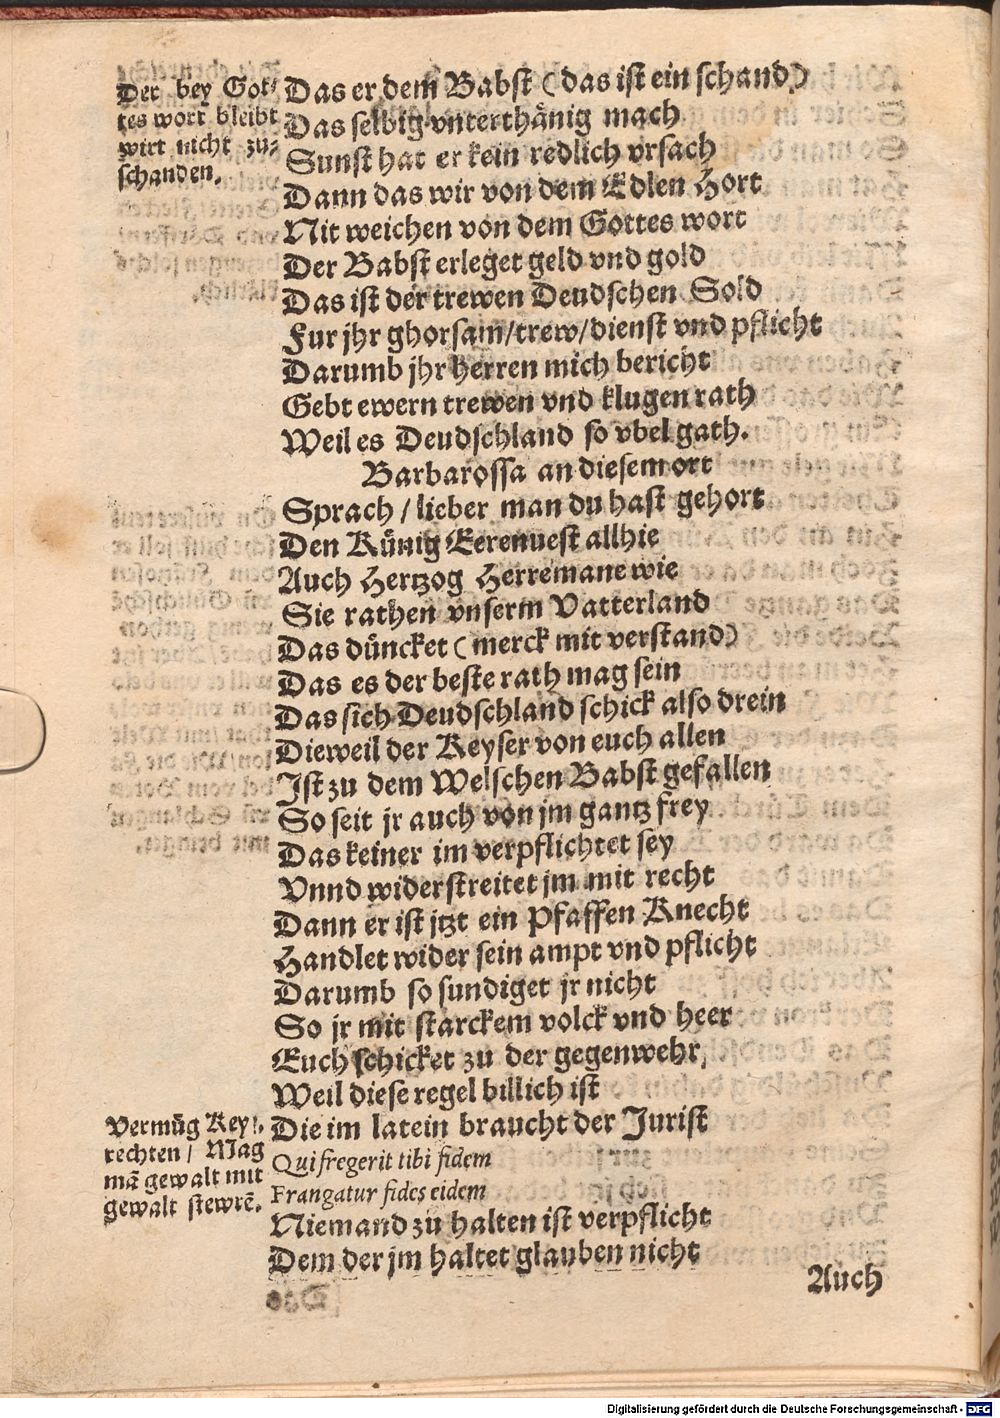 Der bey Got-
tes wort bleibt
wirt nicht zu-
schanden.
Das er dem Babst (das ist ein schand)
Das selbig vnterthänig mach
Sunst hat er kein redlich vrsach
Dann das wir von dem Edlen Hort
Nit weichen von dem Gottes wort
Der Babst erleget geld vnd gold
Das ist der trewen Deudschen Sold
Fur jhr ghorsam/trew/dienst vnd pflicht
Darumb jhr herren mich bericht
Gebt ewern trewen vnd klugen rath
Weil es Deudschland so vbel gath.
Barbarossa an diesem ort
Sprach / lieber man du hast gehort
Den Künig Eerenuest allhie
Auch Hertzog Herremane wie
Sie rathen vnserm Vatterland
Das düncket (merck mit verstand)
Das es der beste rath mag sein
Das sich Deudschland schick also drein
Dieweil der Keyser von euch allen
Ist zu dem Welschen Babst gefallen
So seit jr auch von jm gantz frey
Das keiner im verpflichtet sey
Vnnd widerstreitet jm mit recht
Dann er ist jtzt ein Pfaffen Knecht
Handlet wider sein ampt vnd pflicht
Darumb so sundiget jr nicht
So jr mit starckem volck vnd heer
Euch schicket zu der gegenwehr,
Weil diese regel billich ist
Die im latein braucht der Jurist
Vermüg Keys.
rechten / Mag
mā gewalt mit
gewalt stewrē.
Qui fregerit tibi fidem
Frangatur fides eidem
Niemand zu halten ist verpflicht
Dem der jm haltet glauben nicht
Auch
Digitalisierung gefördert durch die Deutsche Forschungsgemeinschaft - DFG